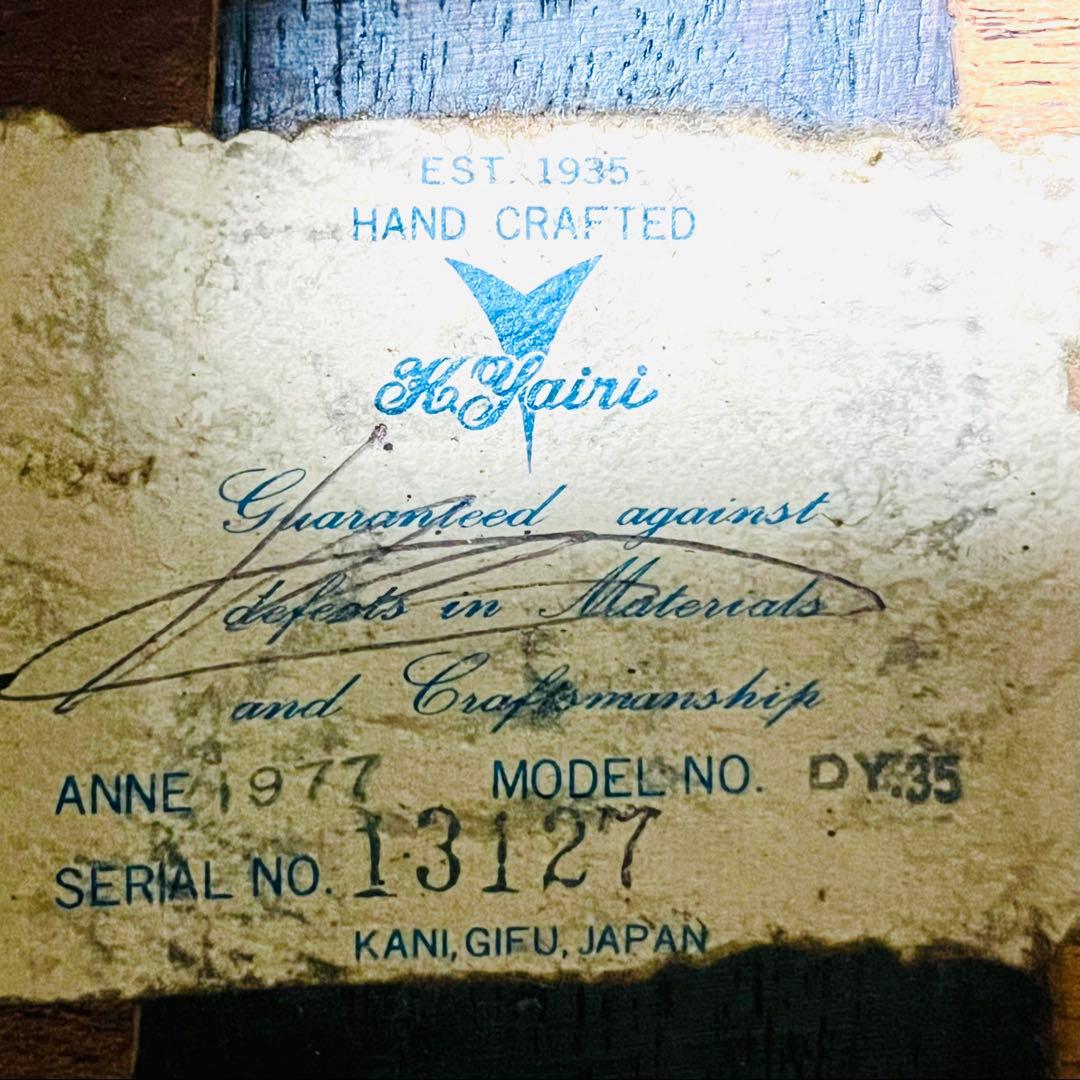 EST. 1935
HAND CRAFTED
K.Yairi
Guaranteed against
defects in Materials
and Craftsmanship
ANNE 1977 MODEL NO. DY.35
SERIAL NO. 13127
KANI, GIFU, JAPAN